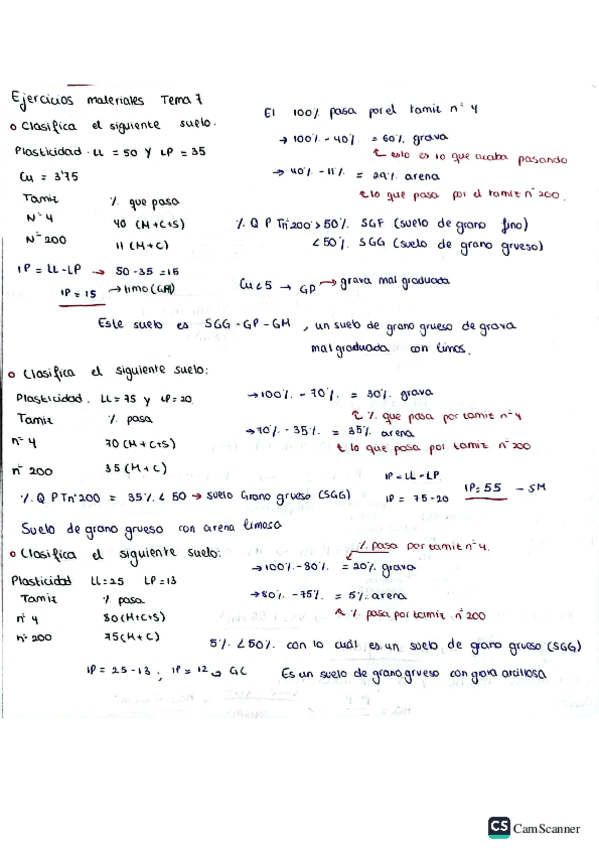 Ejercicios materiales Tema 7
o Clasifica el siguiente suelo.
Plasticidad. LL = 50 y LP = 35
Cu = 3'75
Tamiz % que pasa
Nº 4 40 (M+C+S)
Nº 200 11 (M+C)
IP = LL-LP → 50-35 = 15
IP = 15 → limo (GM)
El 100% pasa por el tamiz nº 4
→ 100% - 40% = 60% grava
esto es lo que acaba pasando
→ 40% - 11% = 29% arena
lo que pasa por el tamiz nº 200.
% Q P Tnº200 > 50% SGF (suelo de grano fino)
< 50% SGG (suelo de grano grueso)
Cu < 5 → GP → grava mal graduada
Este suelo es SGG - GP - GM, un suelo de grano grueso de grava
mal graduada con limos.
o Clasifica el siguiente suelo:
Plasticidad. LL = 75 y LP = 20.
Tamiz % pasa
nº 4 70 (M+C+S)
nº 200 35 (M+C)
→ 100% - 70% = 30% grava
% que pasa por tamiz nº 4
→ 70% - 35% = 35% arena
lo que pasa por tamiz nº 200
IP = LL - LP.
IP = 75 - 20 IP: 55 - SM
% Q P Tnº 200 = 35% < 50 → suelo Grano grueso (SGG)
Suelo de grano grueso con arena limosa
o Clasifica el siguiente suelo:
Plasticidad LL = 25 LP = 13
Tamiz % pasa
nº 4 80 (M+C+S)
nº 200 75 (M+C)
% pasa por tamiz nº 4.
→ 100% - 80% = 20% grava
→ 80% - 75% = 5% arena
% pasa por tamiz nº 200
5% < 50% con lo cuál es un suelo de grano grueso (SGG)
IP = 25 - 13; IP = 12 → GC Es un suelo de grano grueso con grava arcillosa
CS CamScanner